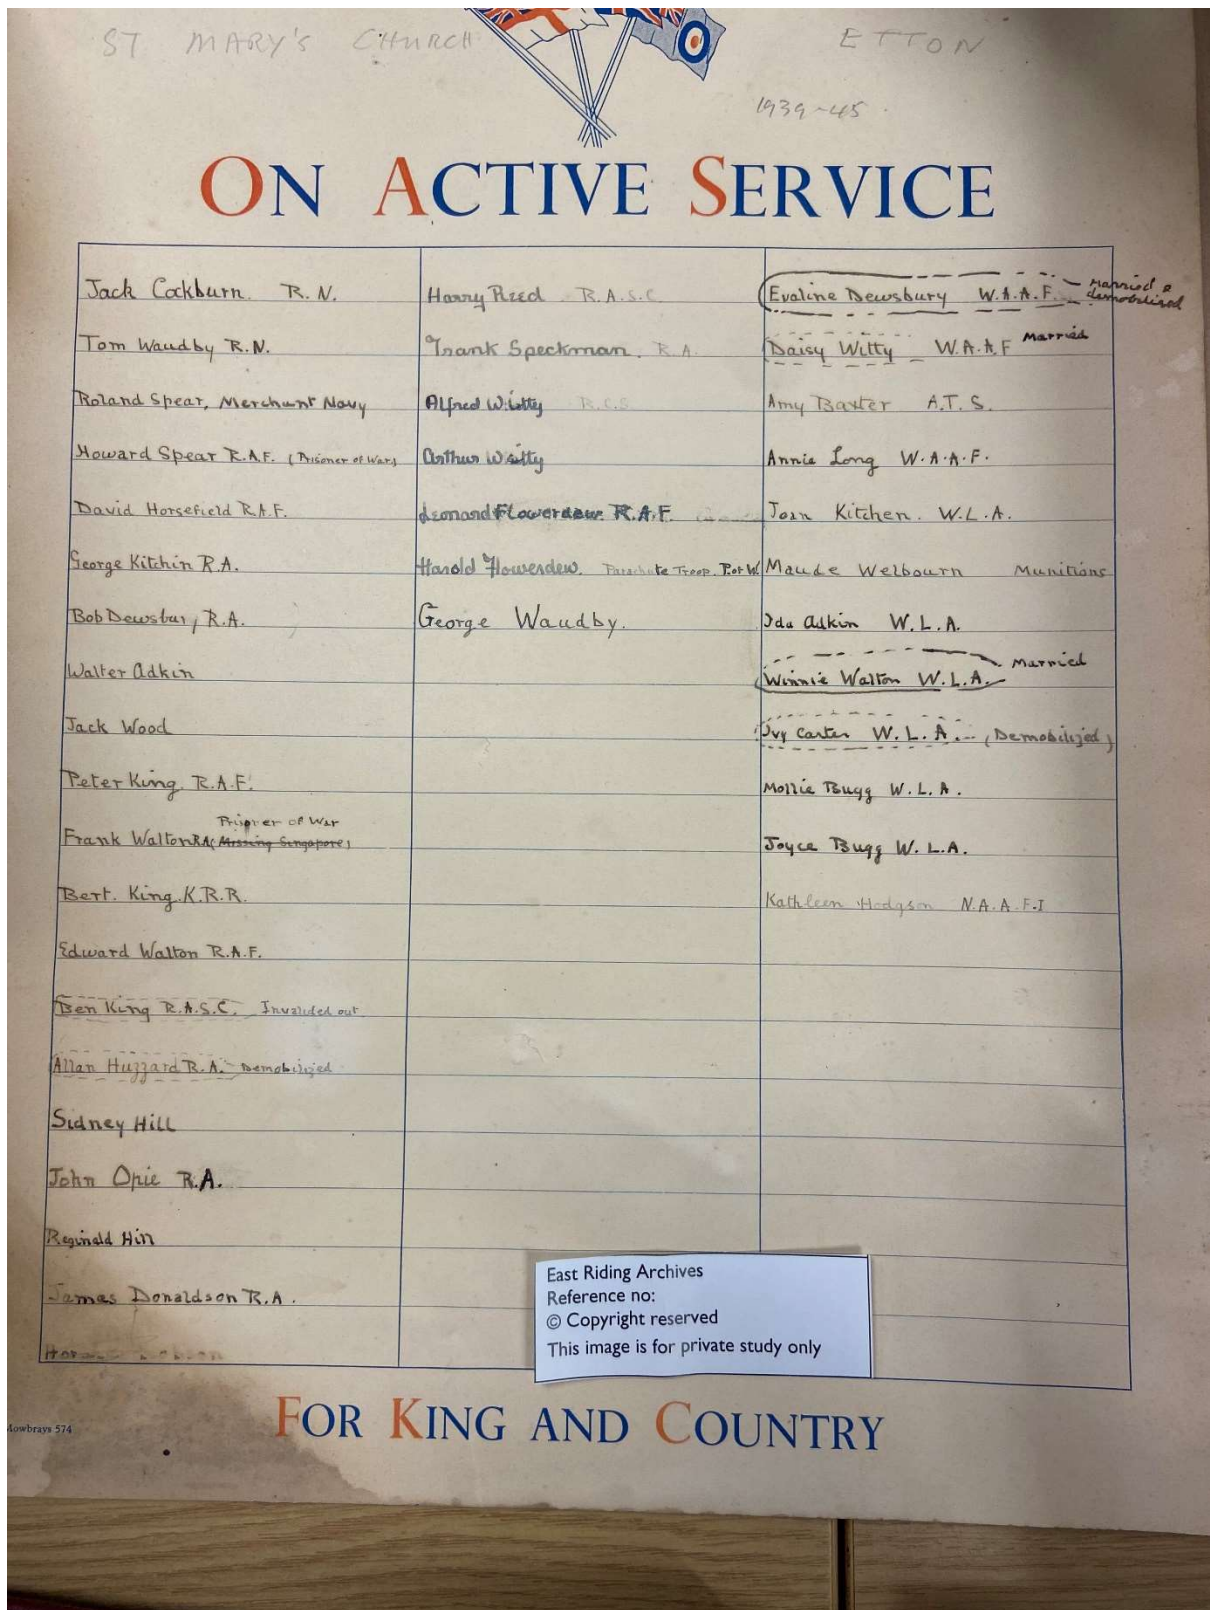 ST MARY'S CHURCH ETTON
1939-45
ON ACTIVE SERVICE
Jack Cockburn. R.N.
Tom Waudby R.N.
Roland Spear, Merchant Navy
Howard Spear R.A.F. (Prisoner of War)
David Horsefield R.A.F.
George Kitchin R.A.
Bob Dewsbury R.A.
Walter Adkin
Jack Wood
Peter King. R.A.F.
Prisoner of War
Frank Walton R.A. (Missing Singapore)
Bert. King. K.R.R.
Edward Walton R.A.F.
Ben King R.A.S.C. Invalided out
Allan Huzzard R.A. Demobilized
Sidney Hill
John Opie R.A.
Reginald Hill
James Donaldson R.A.
Harry Reed R.A.S.C.
Frank Speckman. R.A.
Alfred Witty R.C.S
Arthur Witty
Leonard Flowerdew R.A.F.
Harold Flowerdew. Parachute Troop. P. of W.
George Waudby.
Evaline Dewsbury W.A.A.F. Married & demobilized
Daisy Witty W.A.A.F Married
Amy Baxter A.T.S.
Annie Long W.A.A.F.
Joan Kitchen. W.L.A.
Maude Welbourn Munitions
Ida Adkin W.L.A.
Winnie Walton W.L.A. Married
Ivy Carter W.L.A. (Demobilized)
Mollie Bugg W.L.A.
Joyce Bugg W.L.A.
Kathleen Hodgson N.A.A.F.I
East Riding Archives
Reference no:
© Copyright reserved
This image is for private study only
FOR KING AND COUNTRY
Mowbrays 574